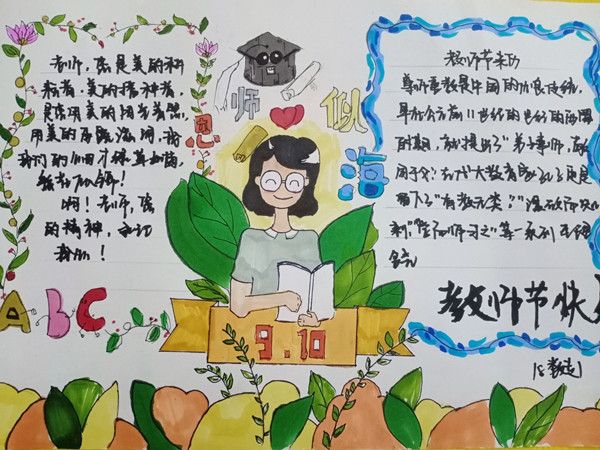 老师,您是美的耕
耘者,美的播种者.
是您用美的阳光普照,
用美的雨露滋润,我
们的心田才绿草如茵,
繁花似锦!
啊!老师,您
的精神,永记
我心!
师恩似海
A B C
9.10
教师节来历
尊师重教是中国的优良传统,
早在公元前11世纪的
时期,就提出"弟子事师,敬
同于父"古代大教育家孔子更是
留下了"有教无类""温故而知
"等一系列
教师节快